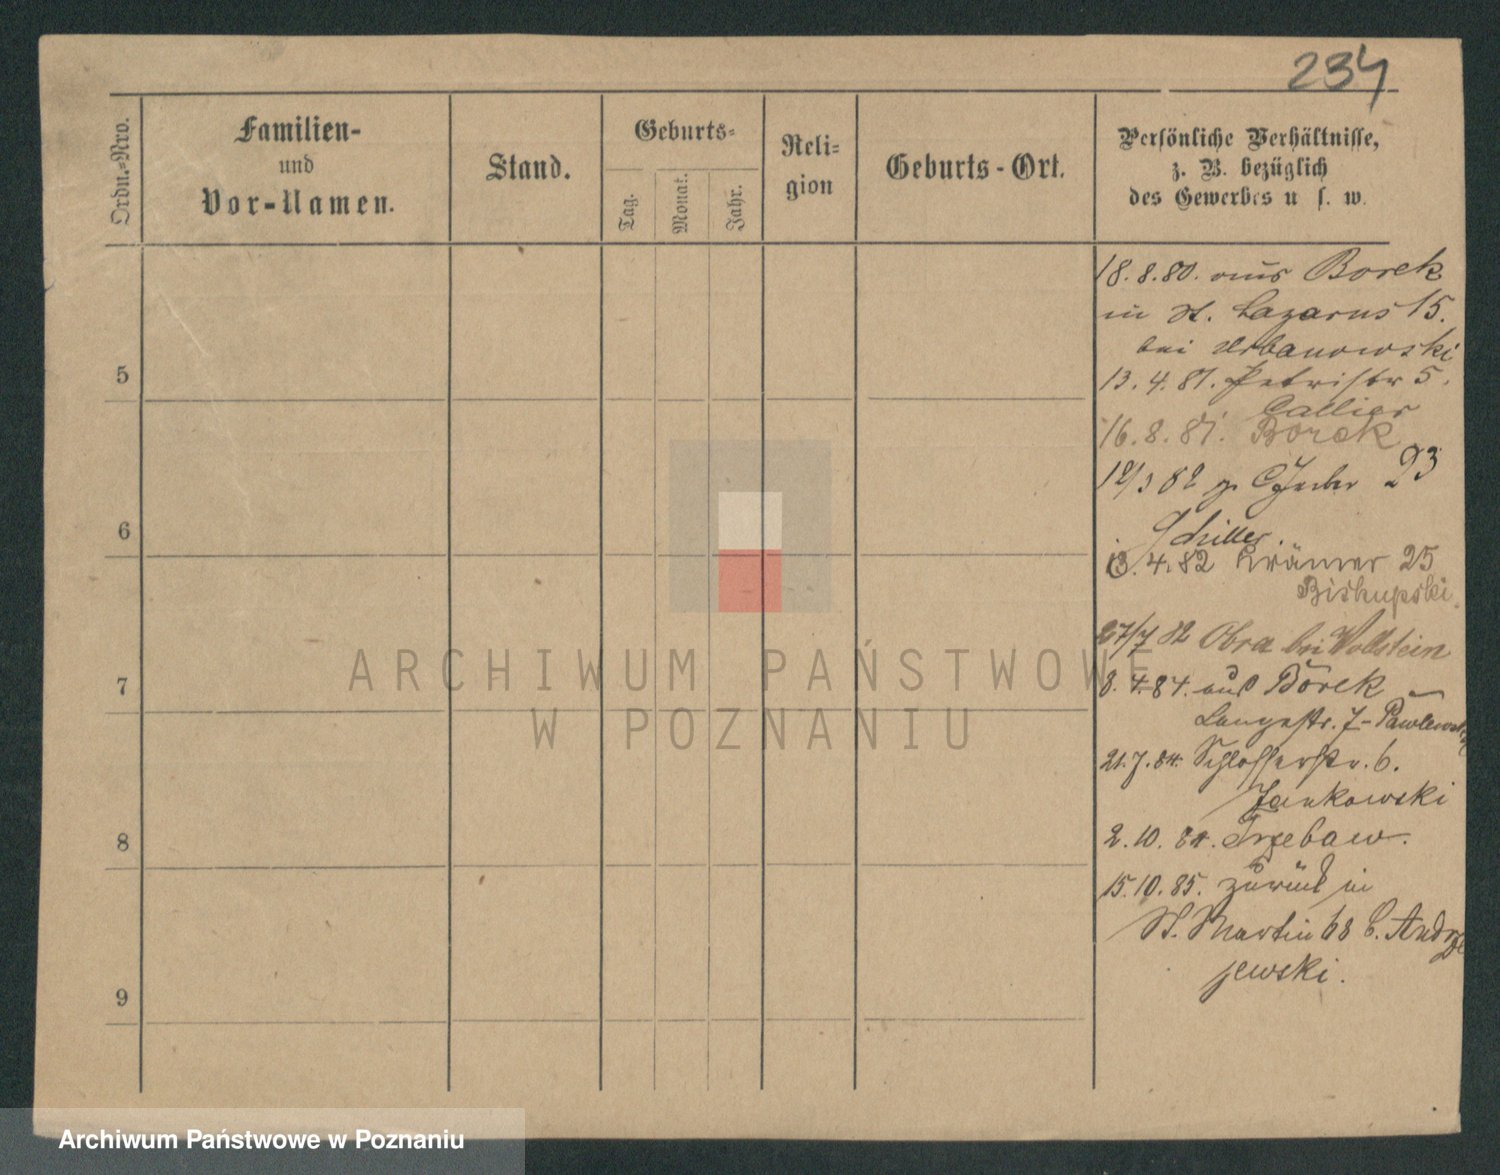 234
Ordn.-Nro.
Familien-
und
Vor-Namen.
Stand.
Geburts-
Tag.
Monat.
Jahr.
Reli-
gion
Geburts-Ort.
Persönliche Verhältnisse,
z. B. bezüglich
des Gewerbes u. s. w.
18.8.80. aus Borek
in St. Lazarus 15.
bei Urbanowski
5
13.4.81. Petristr 5.
Callier
16.8.81. Borek
23
6
Schiller.
13.4.82 Krämer 25
Biskupski.
27/7 82 Obra bei Wollstein
7
8.4.84. aus Borek
Langestr. 7- Pawlewski
21.7.84. Schlosserstr. 6.
Jankowski
8
2.10.84. Trzebaw.
15.10.85. zurück in
St. Martin 68 b. Andrze
jewski.
9
ARCHIWUM PAŃSTWOWE
W POZNANIU
Archiwum Państwowe w Poznaniu